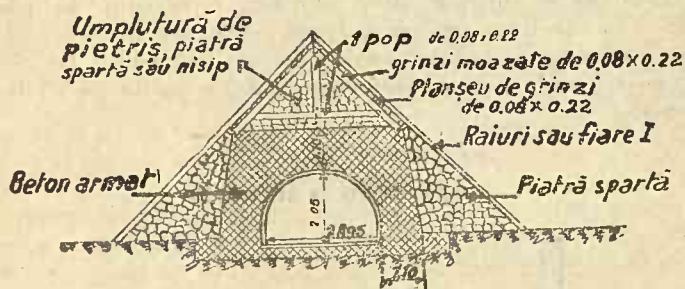 Umplutură de
pietriș, piatră
spartă sau nisip
1 pop de 0,08×0.22
grinzi moazate de 0,08×0.22
Planseu de grinzi
de 0.08×0.22
Raiuri sau fiare I
Beton armat
Piatră spartă
2.05